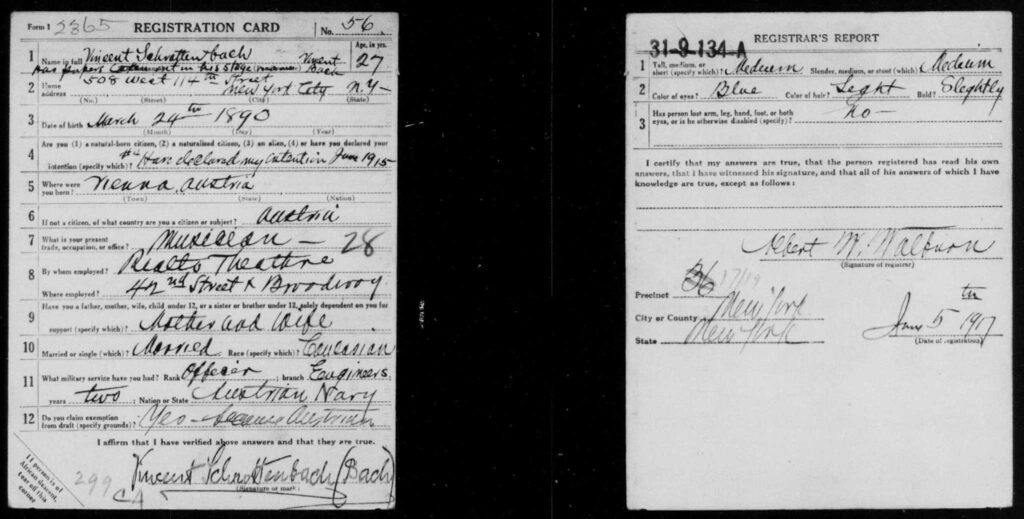 Form 1 2365 REGISTRATION CARD No. 56
1 Name in full Vincent Schrottenbach Vincent Bach Age, in yrs. 27
in his stage name
2 Home address 508 West 114th Street New York City N.Y-
(No.) (Street) (City) (State)
3 Date of birth March 24th 1890
(Month) (Day) (Year)
4 Are you (1) a natural-born citizen, (2) a naturalized citizen, (3) an alien, (4) or have you declared your
intention (specify which)? #4 Have declared my intention June 1915
5 Where were you born? Vienna, Austria
(Town) (State) (Nation)
6 If not a citizen, of what country are you a citizen or subject? Austria
7 What is your present trade, occupation, or office? Musician - 28
8 By whom employed? Rialto Theathre
Where employed? 42nd Street & Broadway
9 Have you a father, mother, wife, child under 12, or a sister or brother under 12, solely dependent on you for
support (specify which)? Mother and Wife
10 Married or single (which)? Married Race (specify which)? Caucasian
11 What military service have you had? Rank Officer; branch Engineers
years two; Nation or State Austrian Navy
12 Do you claim exemption from draft (specify grounds)? Yes - Austrian
I affirm that I have verified above answers and that they are true.
Vincent Schrottenbach (Bach)
(Signature or mark)
If person is of
African descent,
tear off this
corner
299
CA
31-9-134-A REGISTRAR'S REPORT
1 Tall, medium, or short (specify which)? Medium Slender, medium, or stout (which)? Medium
2 Color of eyes? Blue Color of hair? Leght Bald? Sleghtly
3 Has person lost arm, leg, hand, foot, or both
eyes, or is he otherwise disabled (specify)? No -
I certify that my answers are true, that the person registered has read his own
answers, that I have witnessed his signature, and that all of his answers of which I have
knowledge are true, except as follows:
Albert W. Walburn
(Signature of registrar)
Precinct 36
City or County New York
State New York
June 5th 1917
(Date of registration)